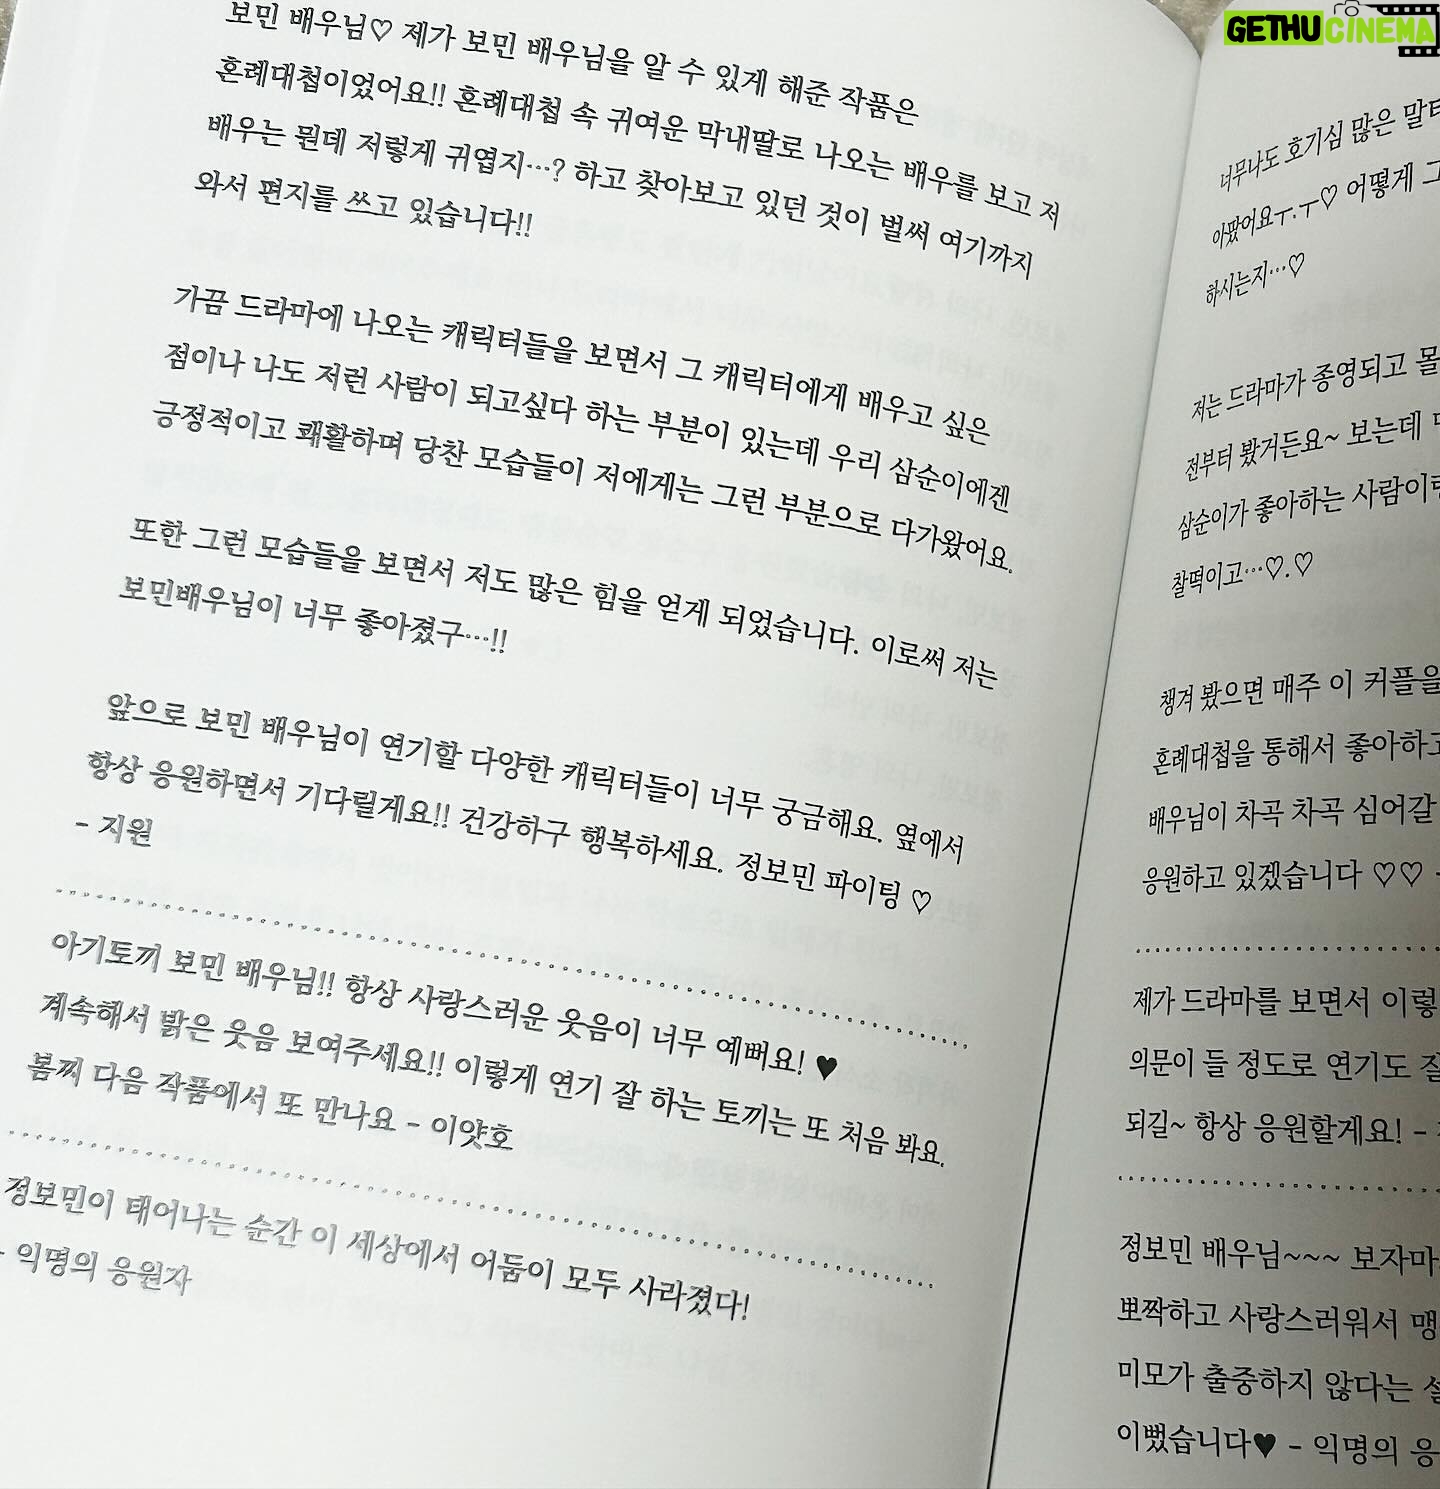 GETHUCINEMA
보민 배우님♡ 제가 보민 배우님을 알 수 있게 해준 작품은
혼례대첩이었어요!! 혼례대첩 속 귀여운 막내딸로 나오는 배우를 보고 저
배우는 뭔데 저렇게 귀엽지…? 하고 찾아보고 있던 것이 벌써 여기까지
와서 편지를 쓰고 있습니다!!
가끔 드라마에 나오는 캐릭터들을 보면서 그 캐릭터에게 배우고 싶은
점이나 나도 저런 사람이 되고싶다 하는 부분이 있는데 우리 삼순이에겐
긍정적이고 쾌활하며 당찬 모습들이 저에게는 그런 부분으로 다가왔어요.
또한 그런 모습들을 보면서 저도 많은 힘을 얻게 되었습니다. 이로써 저는
보민배우님이 너무 좋아졌구…!!
앞으로 보민 배우님이 연기할 다양한 캐릭터들이 너무 궁금해요. 옆에서
항상 응원하면서 기다릴게요!! 건강하구 행복하세요. 정보민 파이팅 ♡
- 지원
아기토끼 보민 배우님!! 항상 사랑스러운 웃음이 너무 예뻐요! ♥
계속해서 밝은 웃음 보여주세요!! 이렇게 연기 잘 하는 토끼는 또 처음 봐요.
봄찌 다음 작품에서 또 만나요 - 이얏호
정보민이 태어나는 순간 이 세상에서 어둠이 모두 사라졌다!
- 익명의 응원자
너무나도 호기심 많은 말
아팠어요ㅜ.ㅜ♡ 어떻게 그
하시는지…♡
저는 드라마가 종영되고 몰
전부터 봤거든요~ 보는데
삼순이가 좋아하는 사람이
찰떡이고…♡.♡
챙겨 봤으면 매주 이 커플을
혼례대첩을 통해서 좋아하고
배우님이 차곡 차곡 심어갈
응원하고 있겠습니다 ♡♡ -
제가 드라마를 보면서 이렇
의문이 들 정도로 연기도 잘
되길~ 항상 응원할게요! -
정보민 배우님~~~ 보자마
뽀짝하고 사랑스러워서 맹
미모가 출중하지 않다는 설
이뻤습니다♥ - 익명의 응